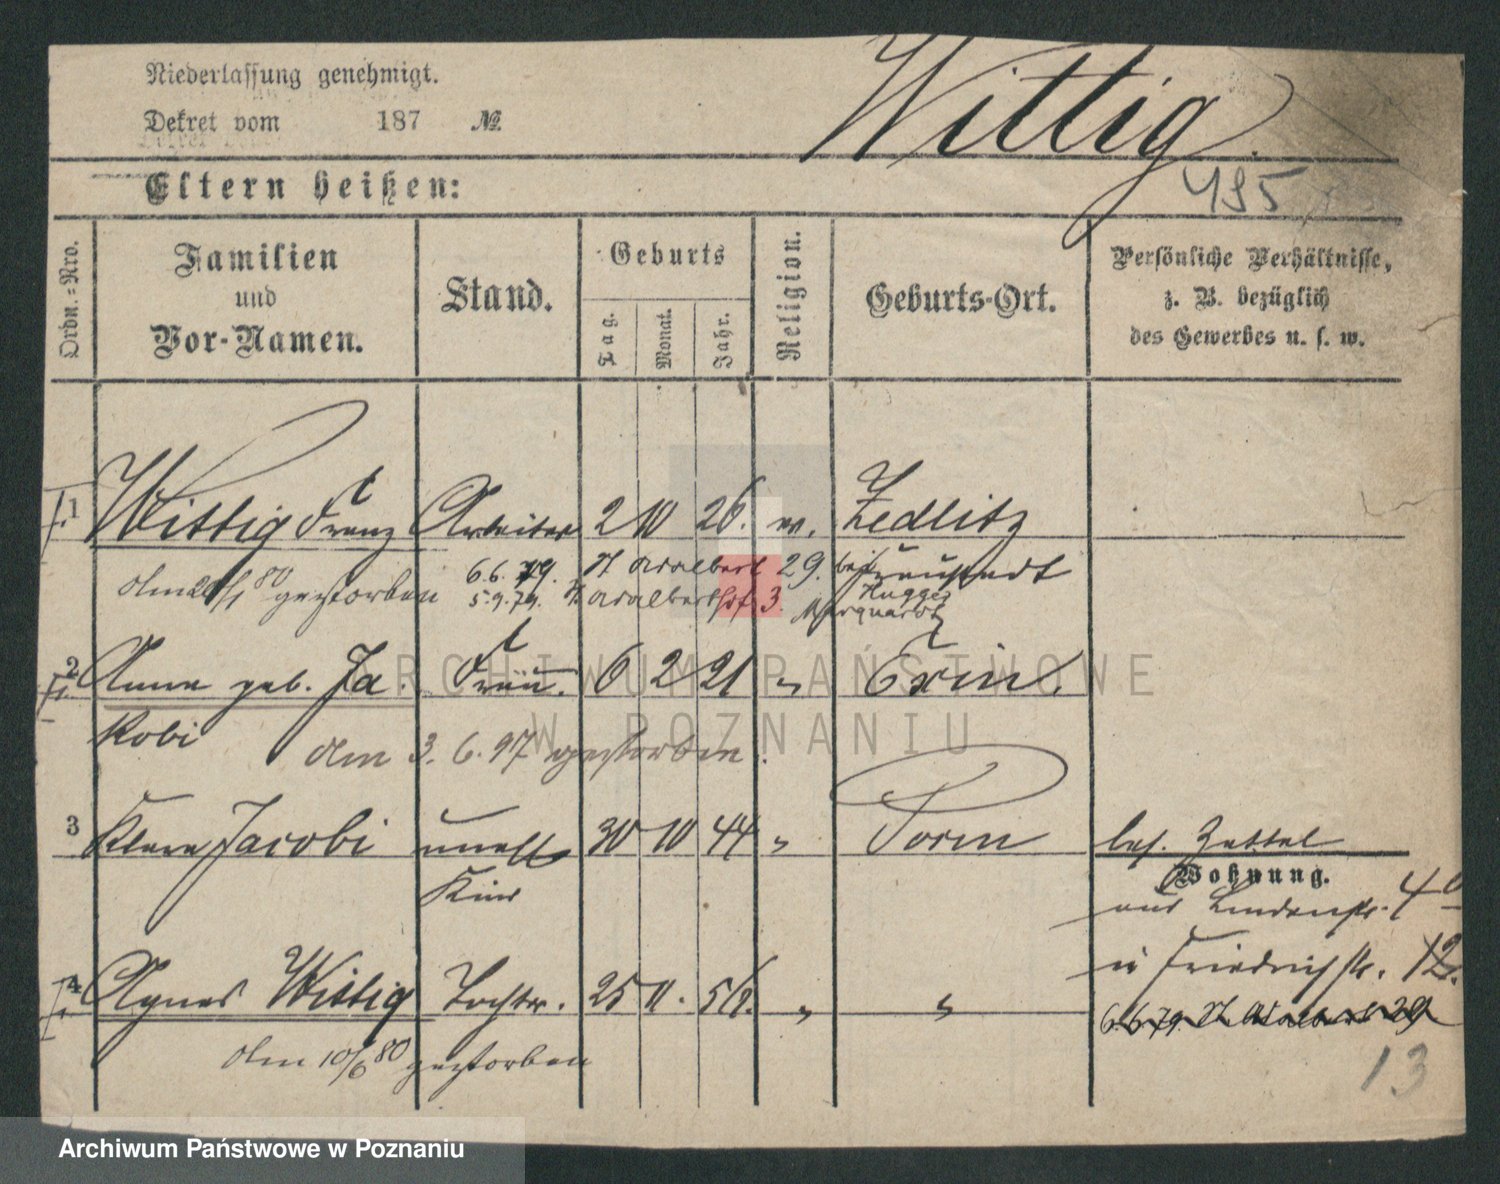 Niederlassung genehmigt.
Dekret vom 187 №
Wittig.
195
Eltern heißen:
Ordn.=Nro.
Familien
und
Vor-Namen.
Stand.
Geburts
Tag.
Monat.
Jahr.
Religion.
Geburts-Ort.
Persönliche Verhältnisse,
z. B. bezüglich
des Gewerbes u. s. w.
1 Wittig Franz Arbeiter 2 10 26. ev. Zedlitz
bei Fraustadt
gestorben 6.6.79. St Adalbert 29.
5.9.79. St Adalbertstr 3.
2 Anna geb. Ja. Frau. 6 2 21 " Exin.
kobi
am 3. 6. 97 gestorben.
3 Klara Jacobi unehl 30 10 44 " Posen
Kind
bes. Zettel
Wohnung.
aus Lindenstr. 4
in Friedrichstr. 12.
4 Agnes Wittig Tochter. 25 11. 56. " "
6.6.79 St Adalbert 29
am 10/6 80 gestorben
13
ARCHIWUM PAŃSTWOWE
W POZNANIU
Archiwum Państwowe w Poznaniu